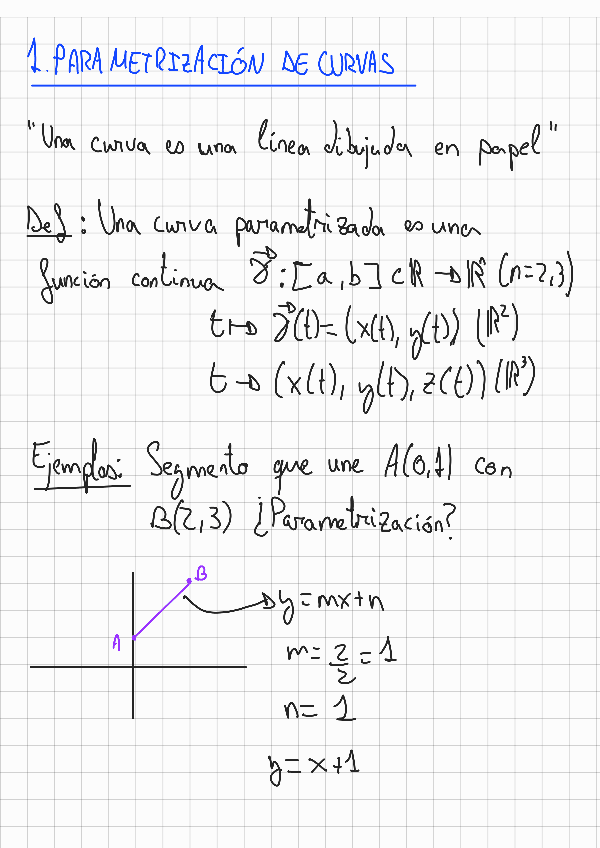 1. PARAMETRIZACIÓN DE CURVAS
"Una curva es una línea dibujada en papel"
Def: Una curva parametrizada es una
función continua γ⃗: [a,b] ⊂ ℝ → ℝⁿ (n=2,3)
t ↦ γ⃗(t) = (x(t), y(t)) (ℝ²)
t → (x(t), y(t), z(t)) (ℝ³)
Ejemplos: Segmento que une A(0,1) con
B(2,3) ¿Parametrización?
B
A
y = mx+n
m = 2/2 = 1
n = 1
y = x+1